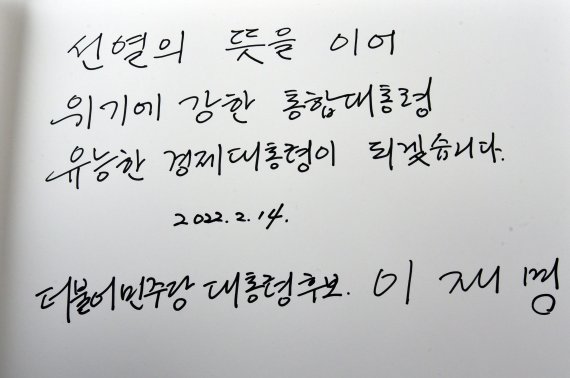 선열의 뜻을 이어
위기에 강한 통합대통령
유능한 경제대통령이 되겠습니다.
2022. 2. 14.
더불어민주당 대통령후보. 이재명